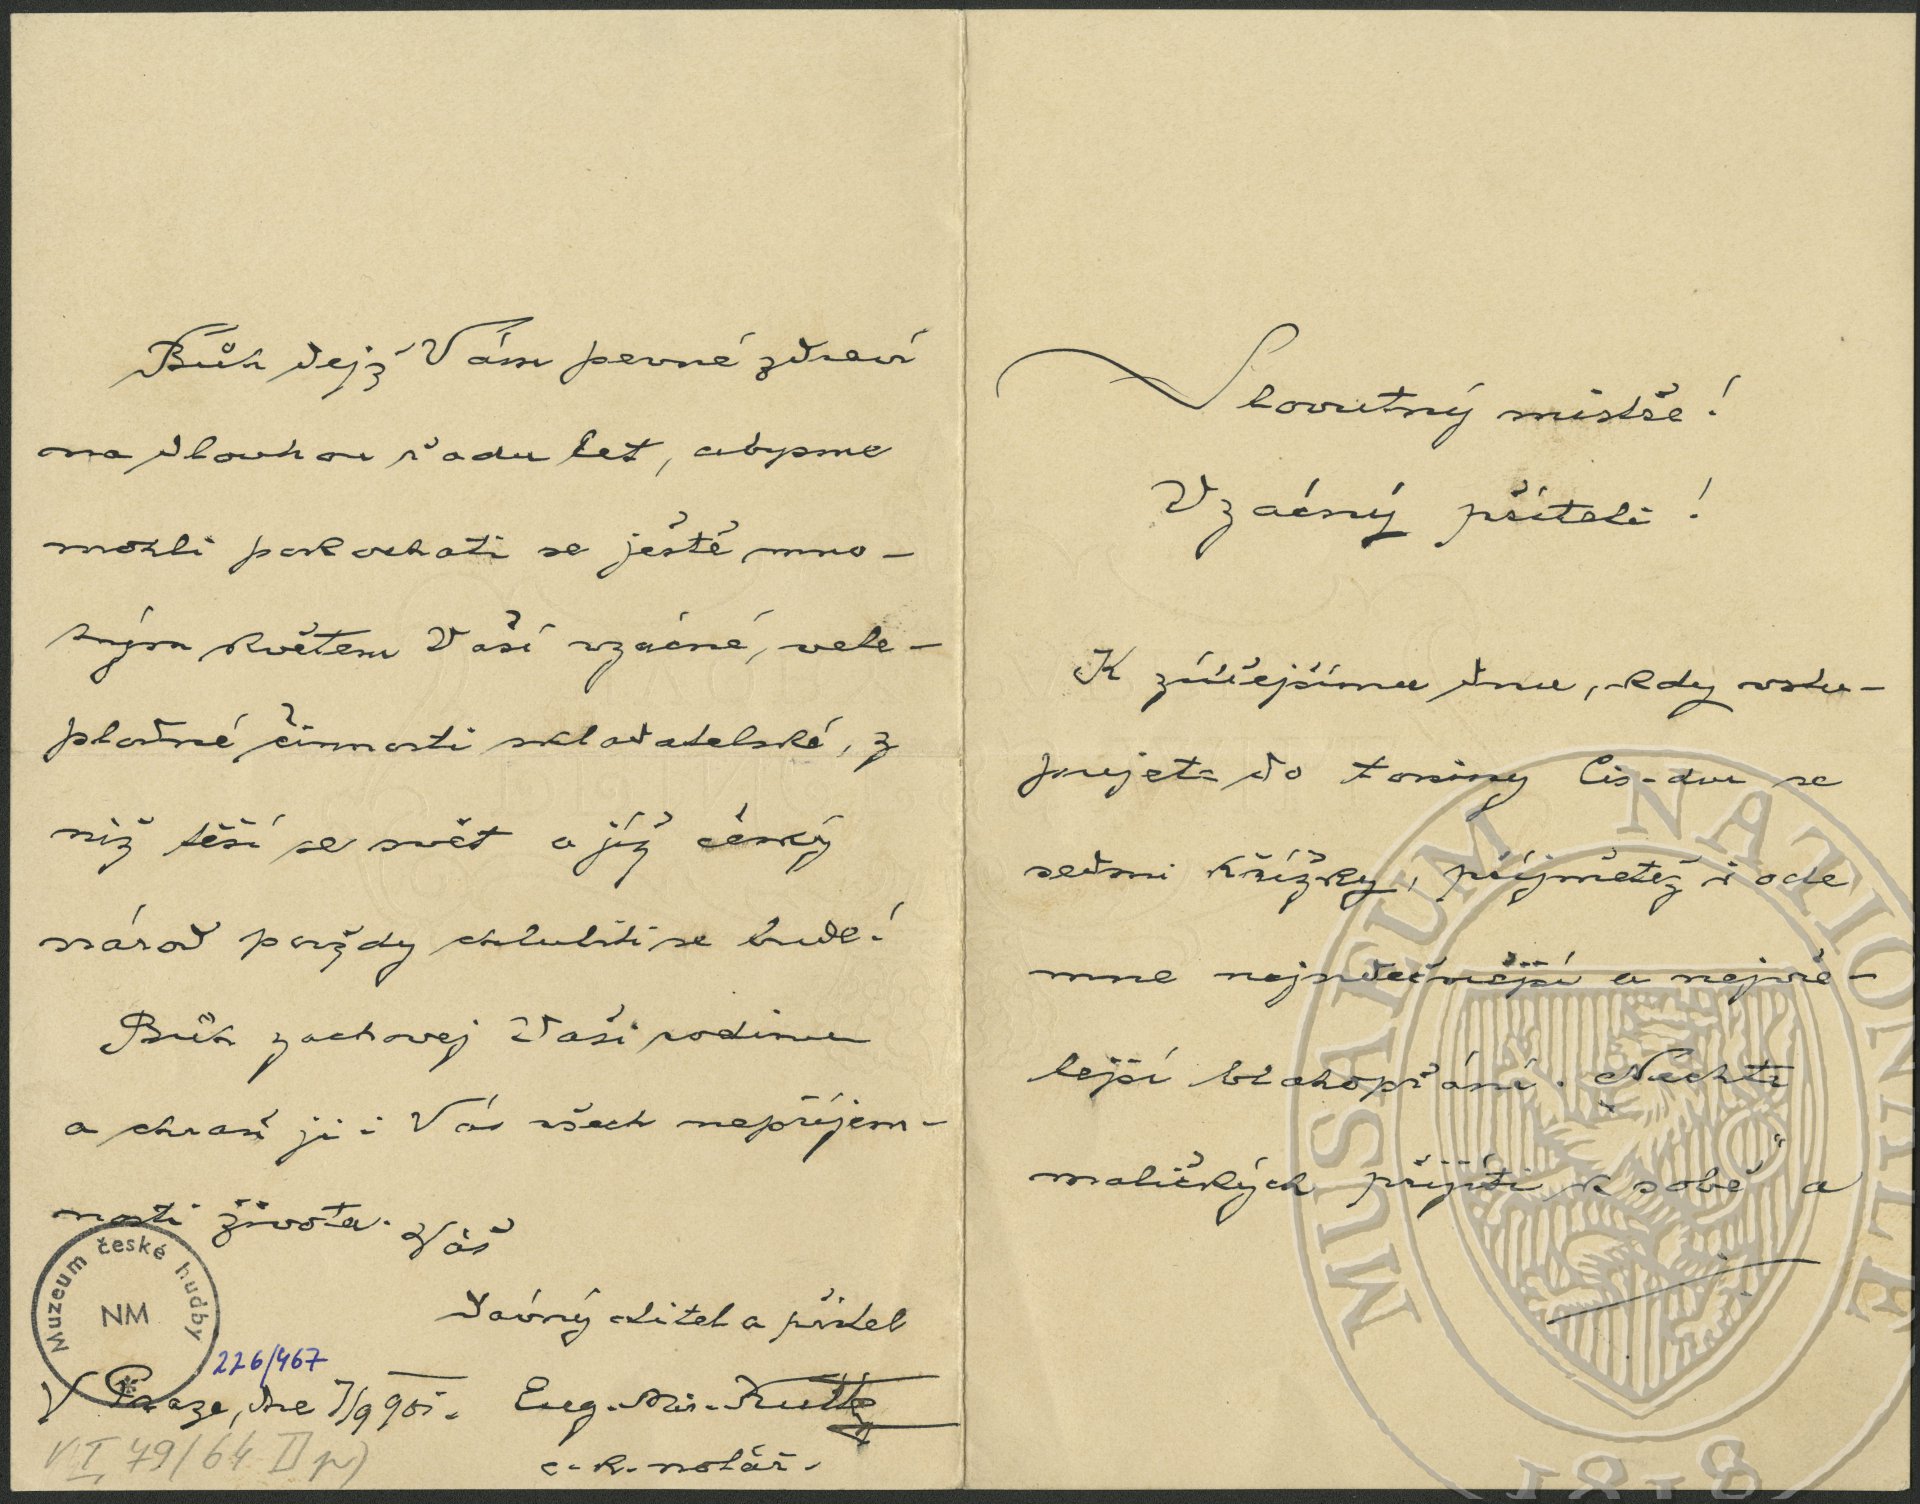 Slovutný mistře!
Vzácný příteli!
K zítřejšímu dnu, kdy vstu-
pujete do toniny Cis-dur se
sedmi křížky, přijmětež i ode
mne nejsrdečnější a nejvře-
lejší blahopřání. Nechte
maličkých přijíti k sobě a
Bůh dejž Vám pevné zdraví
na dlouhou řadu let, abysme
mohli pokochati se ještě mno-
hým květem Vaší vzácné, vele-
plodné činnosti skladatelské, z
níž těší se svět a jíž český
národ povždy chlubiti se bude!
Bůh zachovej Vaši rodinu
a chraň ji i Vás všech nepříjem-
ností života. Váš
dávný ctitel a přítel
V Praze, dne 7/9 901. Eug. Mir.
c. k. notář.
Muzeum české hudby
NM
226/467
VI 79/64 II p)
MUSAEUM NATIONALE
1818